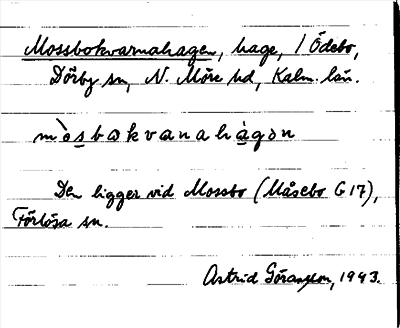 Mossbokvarnahagen, hage, / Ödebo,
Dörby sn, N. Möre hd, Kalm. län.
mòsbokvanahàgən
Den ligger vid Mossbo (Måsebo G 17),
Förlösa sn.
Astrid Göransson, 1943.